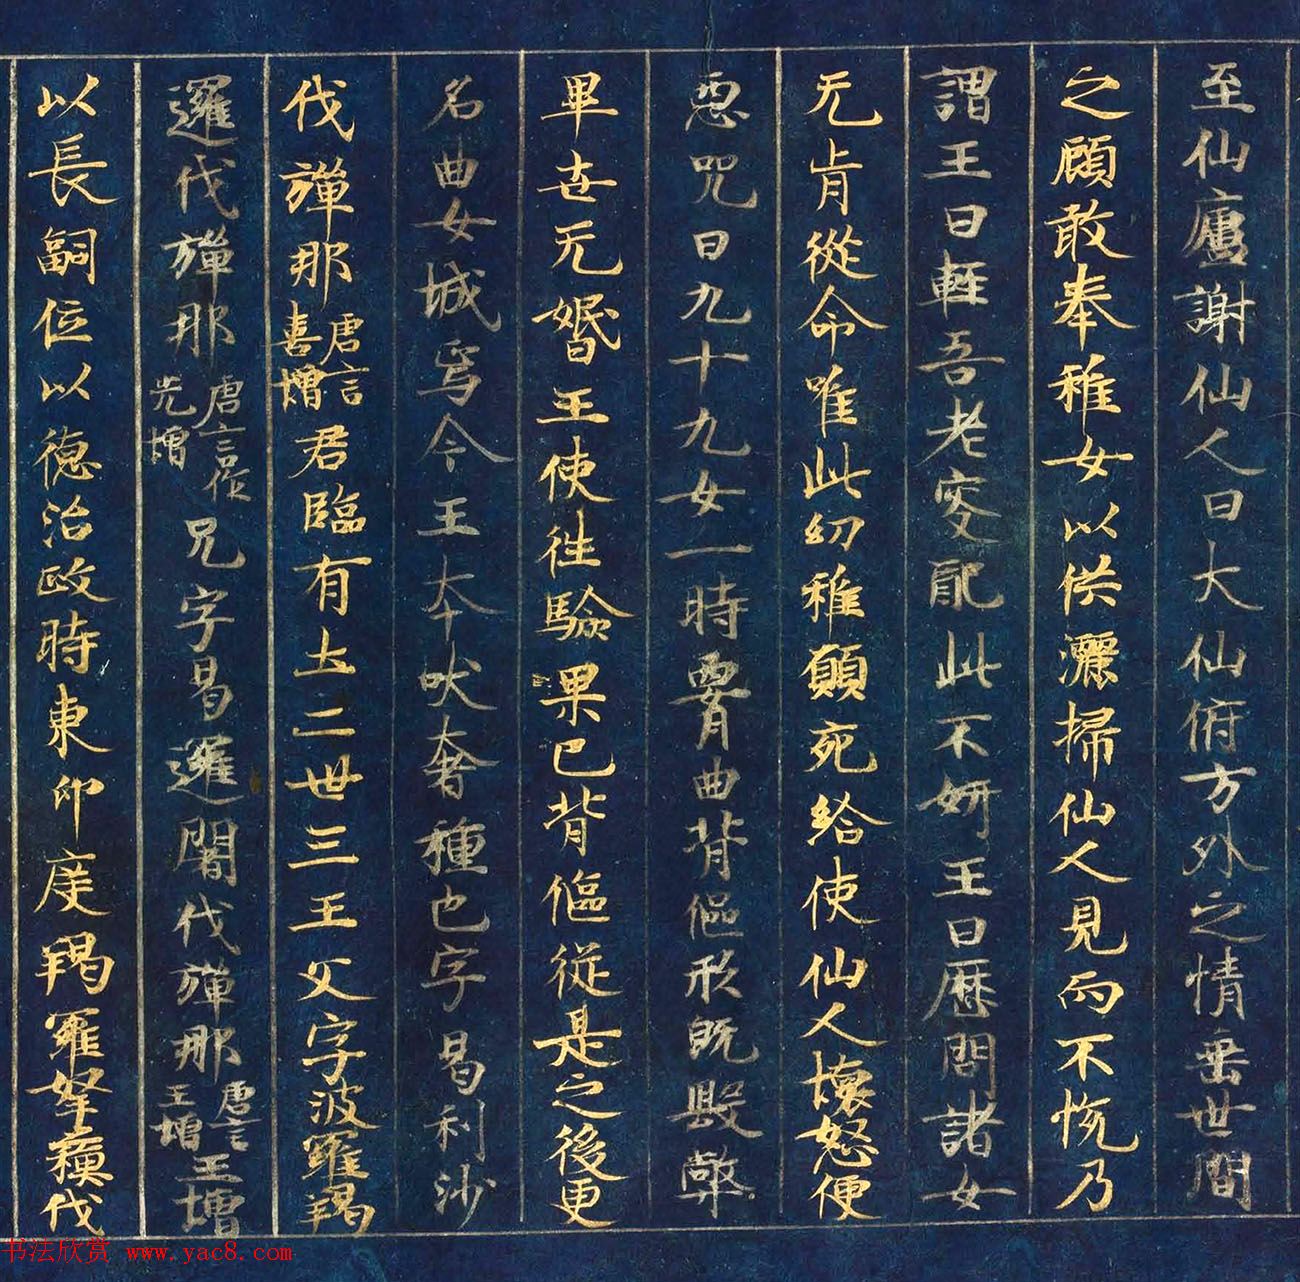 至仙廬謝仙人曰大仙俯方外之情垂世間
之顧敢奉稚女以供灑掃仙人見而不悦乃
謂王曰輕吾老叟配此不妍王曰歷問諸女
无肯從命唯此幼稚願死給使仙人懷怒便
惡咒曰九十九女一時腰曲背傴形既毀弊
畢世无婚王使往驗果已背傴從是之後更
名曲女城焉今王本吠奢種也字曷利沙
伐彈那唐言喜增君臨有土二世三王父字波羅羯
邏伐彈那唐言作光增兄字曷邏闍伐彈那唐言王增王增
以長嗣位以德治政時東印度羯羅拏
伐
书法欣赏 www.yac8.com